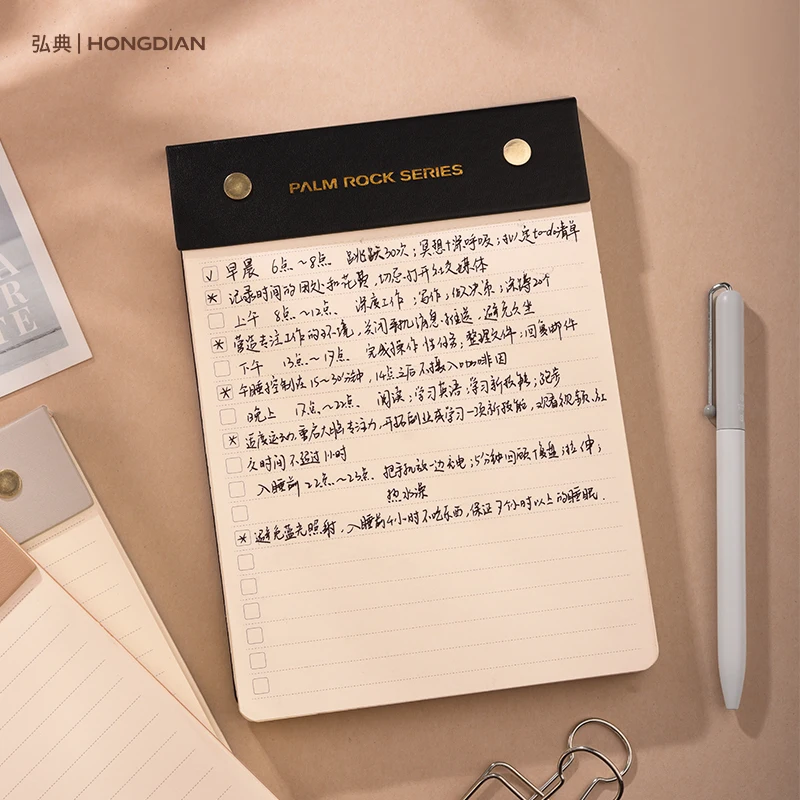 弘典 | HONGDIAN
PALM ROCK SERIES
早晨 6点~8点 跳跃30次；冥想+深呼吸；拟定to-do清单
记录时间的用处和花费，切忌打开社交媒体
上午 8点~12点 深度工作；写作；做决策；深蹲20个
营造专注工作的环境，关闭手机消息推送，避免久坐
下午 13点~17点 完成操作性任务；整理文件；回复邮件
午睡控制在15~30分钟，14点之后不摄入咖啡因
晚上 17点~22点 阅读；学习英语；学习新技能；跑步
适度运动，重启大脑专注力，开拓副业或学习一项新技能，观看视频、社
交时间不超过1小时
入睡前 22点~23点 把手机放一边充电；5分钟回顾+复盘；拉伸；
热水澡
避免蓝光照射，入睡前4小时不吃东西，保证7个小时以上的睡眠.
A
AR
TE